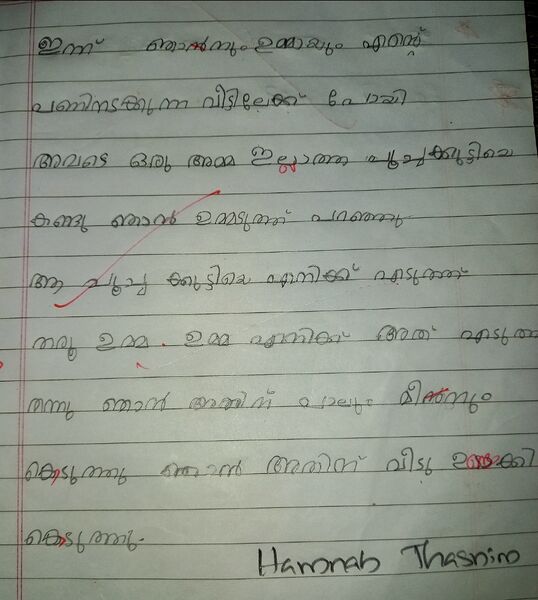 ഇന്ന് ഞാനും ഉമ്മയും എന്റെ
പണിനടക്കുന്ന വീട്ടിലേക്ക് പോയി
അവടെ ഒരു അമ്മ ഇല്ലാത്ത പൂച്ചക്കുട്ടിയെ
കണ്ടു ഞാൻ ഉമ്മടുത്ത് പറഞ്ഞു
ആ പൂച്ച ക്കുട്ടിയെ എനിക്ക് എടുത്ത്
തരൂ ഉമ്മ. ഉമ്മ എനിക്ക് അത് എടുത്ത
തന്നു ഞാൻ അതിന് പാലും മീനും
കൊടുത്തു ഞാൻ അതിന് വീടു ഉണ്ടാക്കി
കൊടുത്തു.
Hannah Thasnim